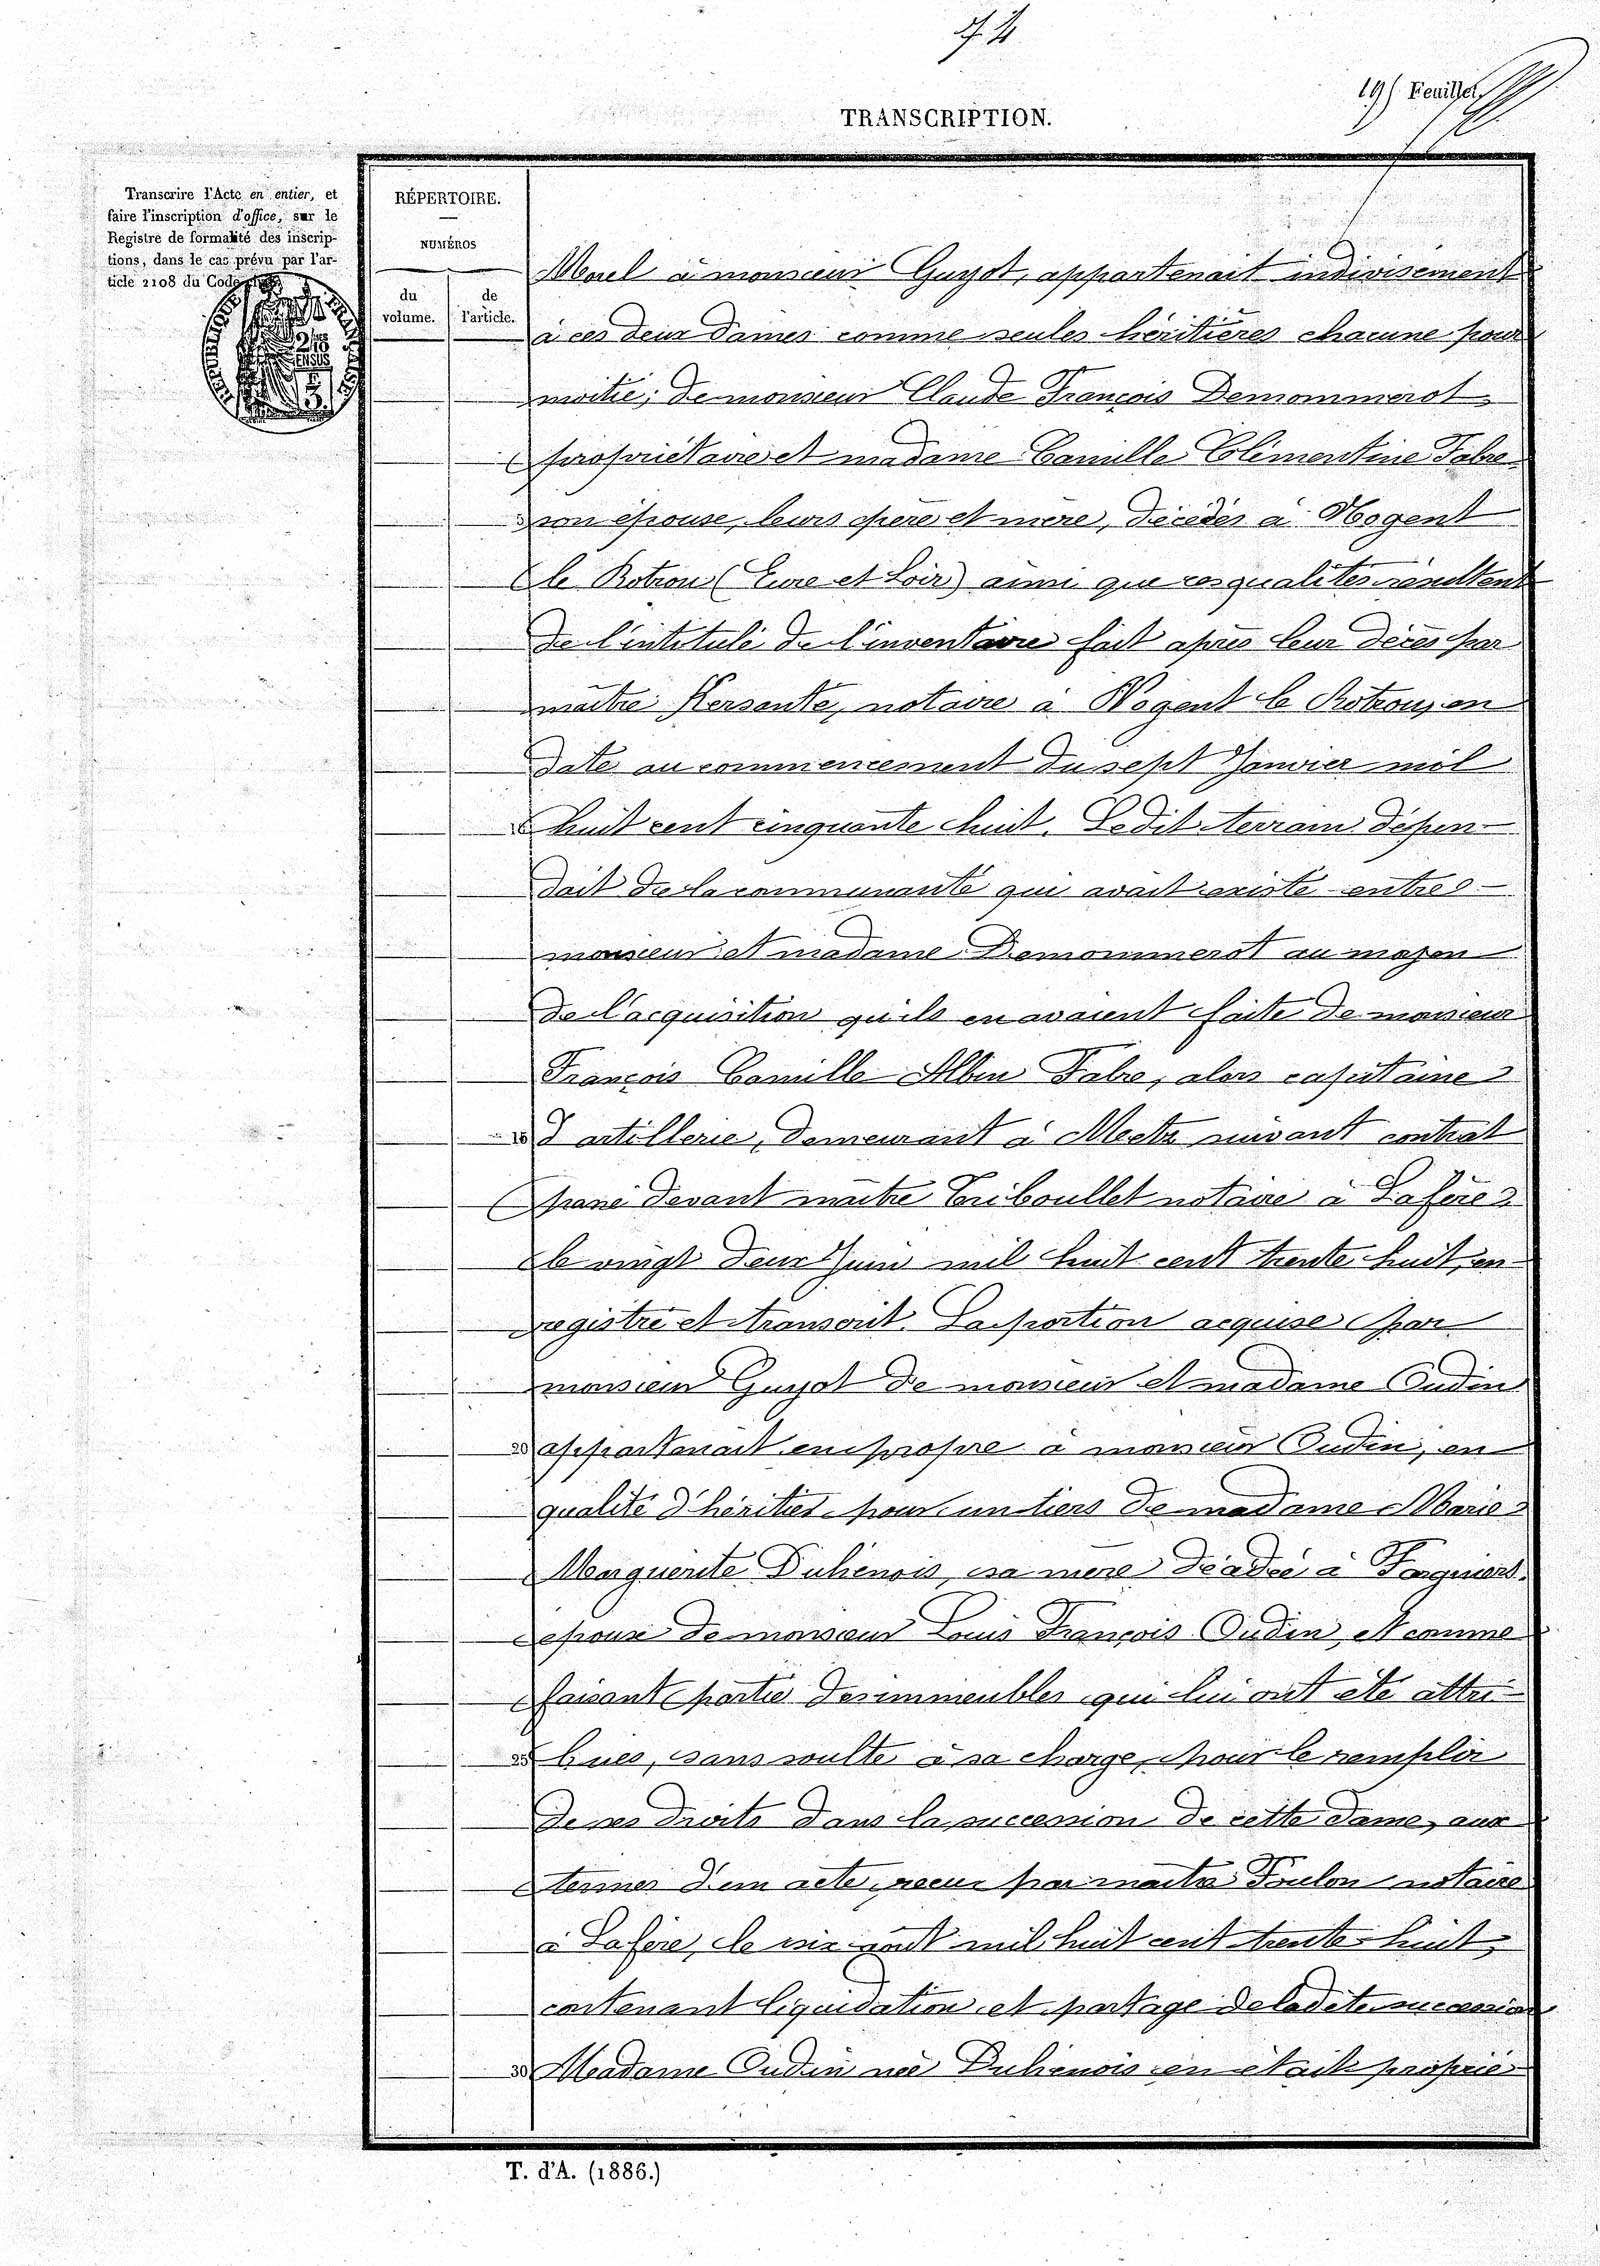 74
191 Feuillet.
TRANSCRIPTION.
Transcrire l'Acte en entier, et
faire l'inscription d'office, sur le
Registre de formalité des inscrip-
tions, dans le cas prévu par l'ar-
ticle 2108 du Code
RÉPERTOIRE.
NUMÉROS
du
volume.
de
l'article.
Morel à monsieur Guyot, appartenait indivisément
à ces deux dames comme seules héritières chacune pour
moitié, de monsieur Claude François Demommerot,
propriétaire et madame Camille Clémentine Fabre
son épouse, leurs père et mère, décédés à Nogent
le Rotrou (Eure et Loir) ainsi que ces qualités résultent
de l'intitulé de l'inventaire fait après leur décès par
maître Kersante, notaire à Nogent le Rotrou, en
date au commencement du sept Janvier mil
10 huit cent cinquante huit. Ledit terrain dépen-
dait de la communauté qui avait existé entre
monsieur et madame Demommerot au moyen
de l'acquisition qu'ils en avaient faite de monsieur
François Camille Albin Fabre, alors capitaine
15 d'artillerie, demeurant à Meetz suivant contrat
passé devant maître Triboullet notaire à Lafère
le vingt deux Juin mil huit cent trente huit, en-
registré et transcrit. La portion acquise par
monsieur Guyot de monsieur et madame Oudin
20 appartenait en propre à monsieur Oudin, en
qualité d'héritier pour un tiers de madame Marie
Marguerite Duhénois, sa mère décédée à Fargniers,
épouse de monsieur Louis François Oudin, et comme
faisant partie des immeubles qui lui ont été attri-
25 bués, sans soulte à sa charge, pour le remplir
de ses droits dans la succession de cette dame, aux
termes d'un acte reçu par maître Foulon notaire
à Lafère, le six août mil huit cent trente huit,
contenant liquidation et partage de ladite succession
30 Madame Oudin née Duhénois en était proprié-
T. d'A. (1886.)